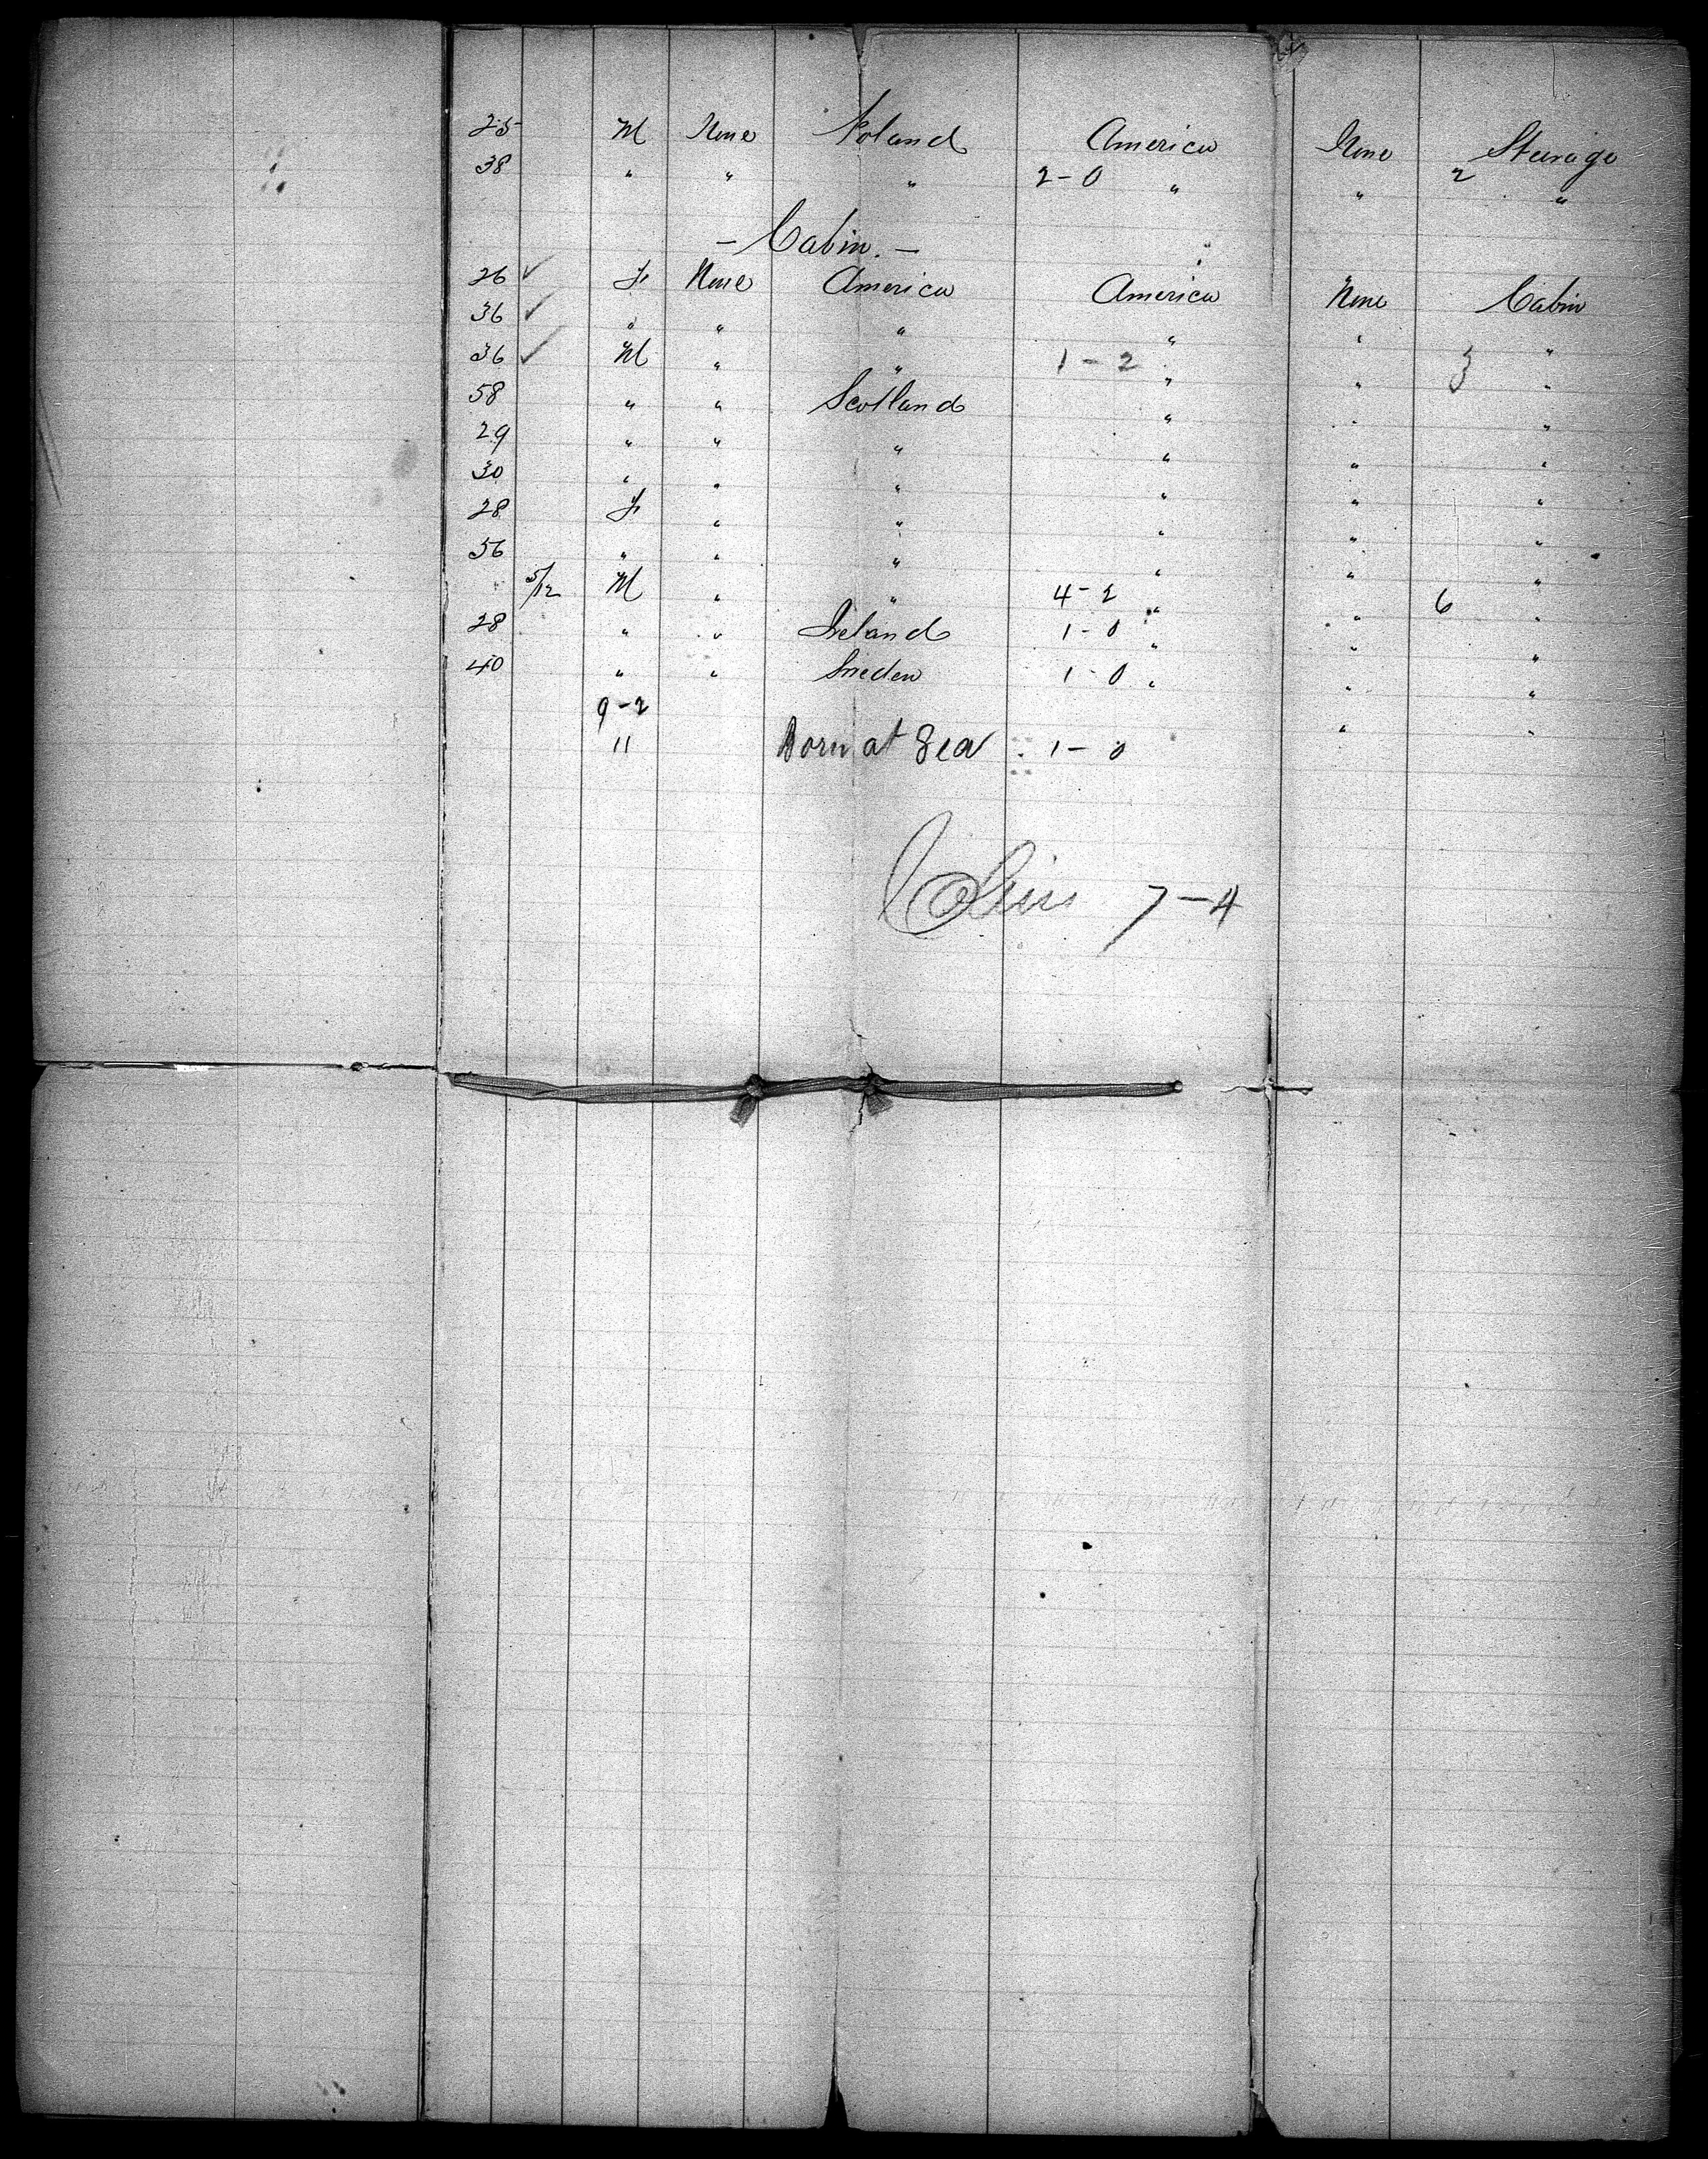 25 M None Poland America None Steerage
38 " " " 2-0 " " 2 "
- Cabin. -
26 ✓ F None America America None Cabin
36 ✓ " " " " " "
36 ✓ M " " 1-2 " " 3 "
58 " " Scotland " " "
29 " " " " " "
30 " " " " " "
28 F " " " " "
56 " " " " " "
5/12 M " " 4-2 " " 6 "
28 " " Ireland 1-0 " " "
40 " " Sweden 1-0 " " "
9-2 " "
11 Born at Sea 1-0
7-4